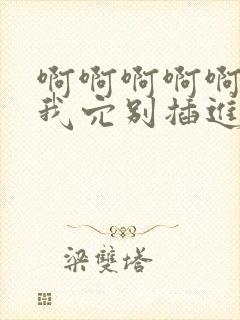 啊啊啊啊啊
我穴别插进
梁双塔